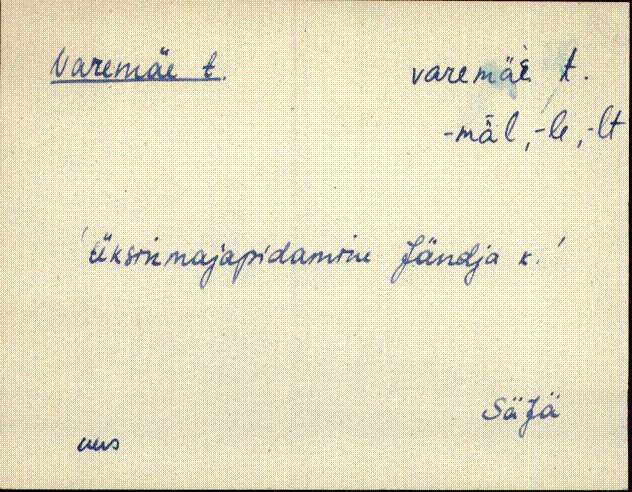 Varemäe t. varemäè t.
-mäl, -le, -lt
'Üksinmajapidamine Jändja k.'
SäJä
uus